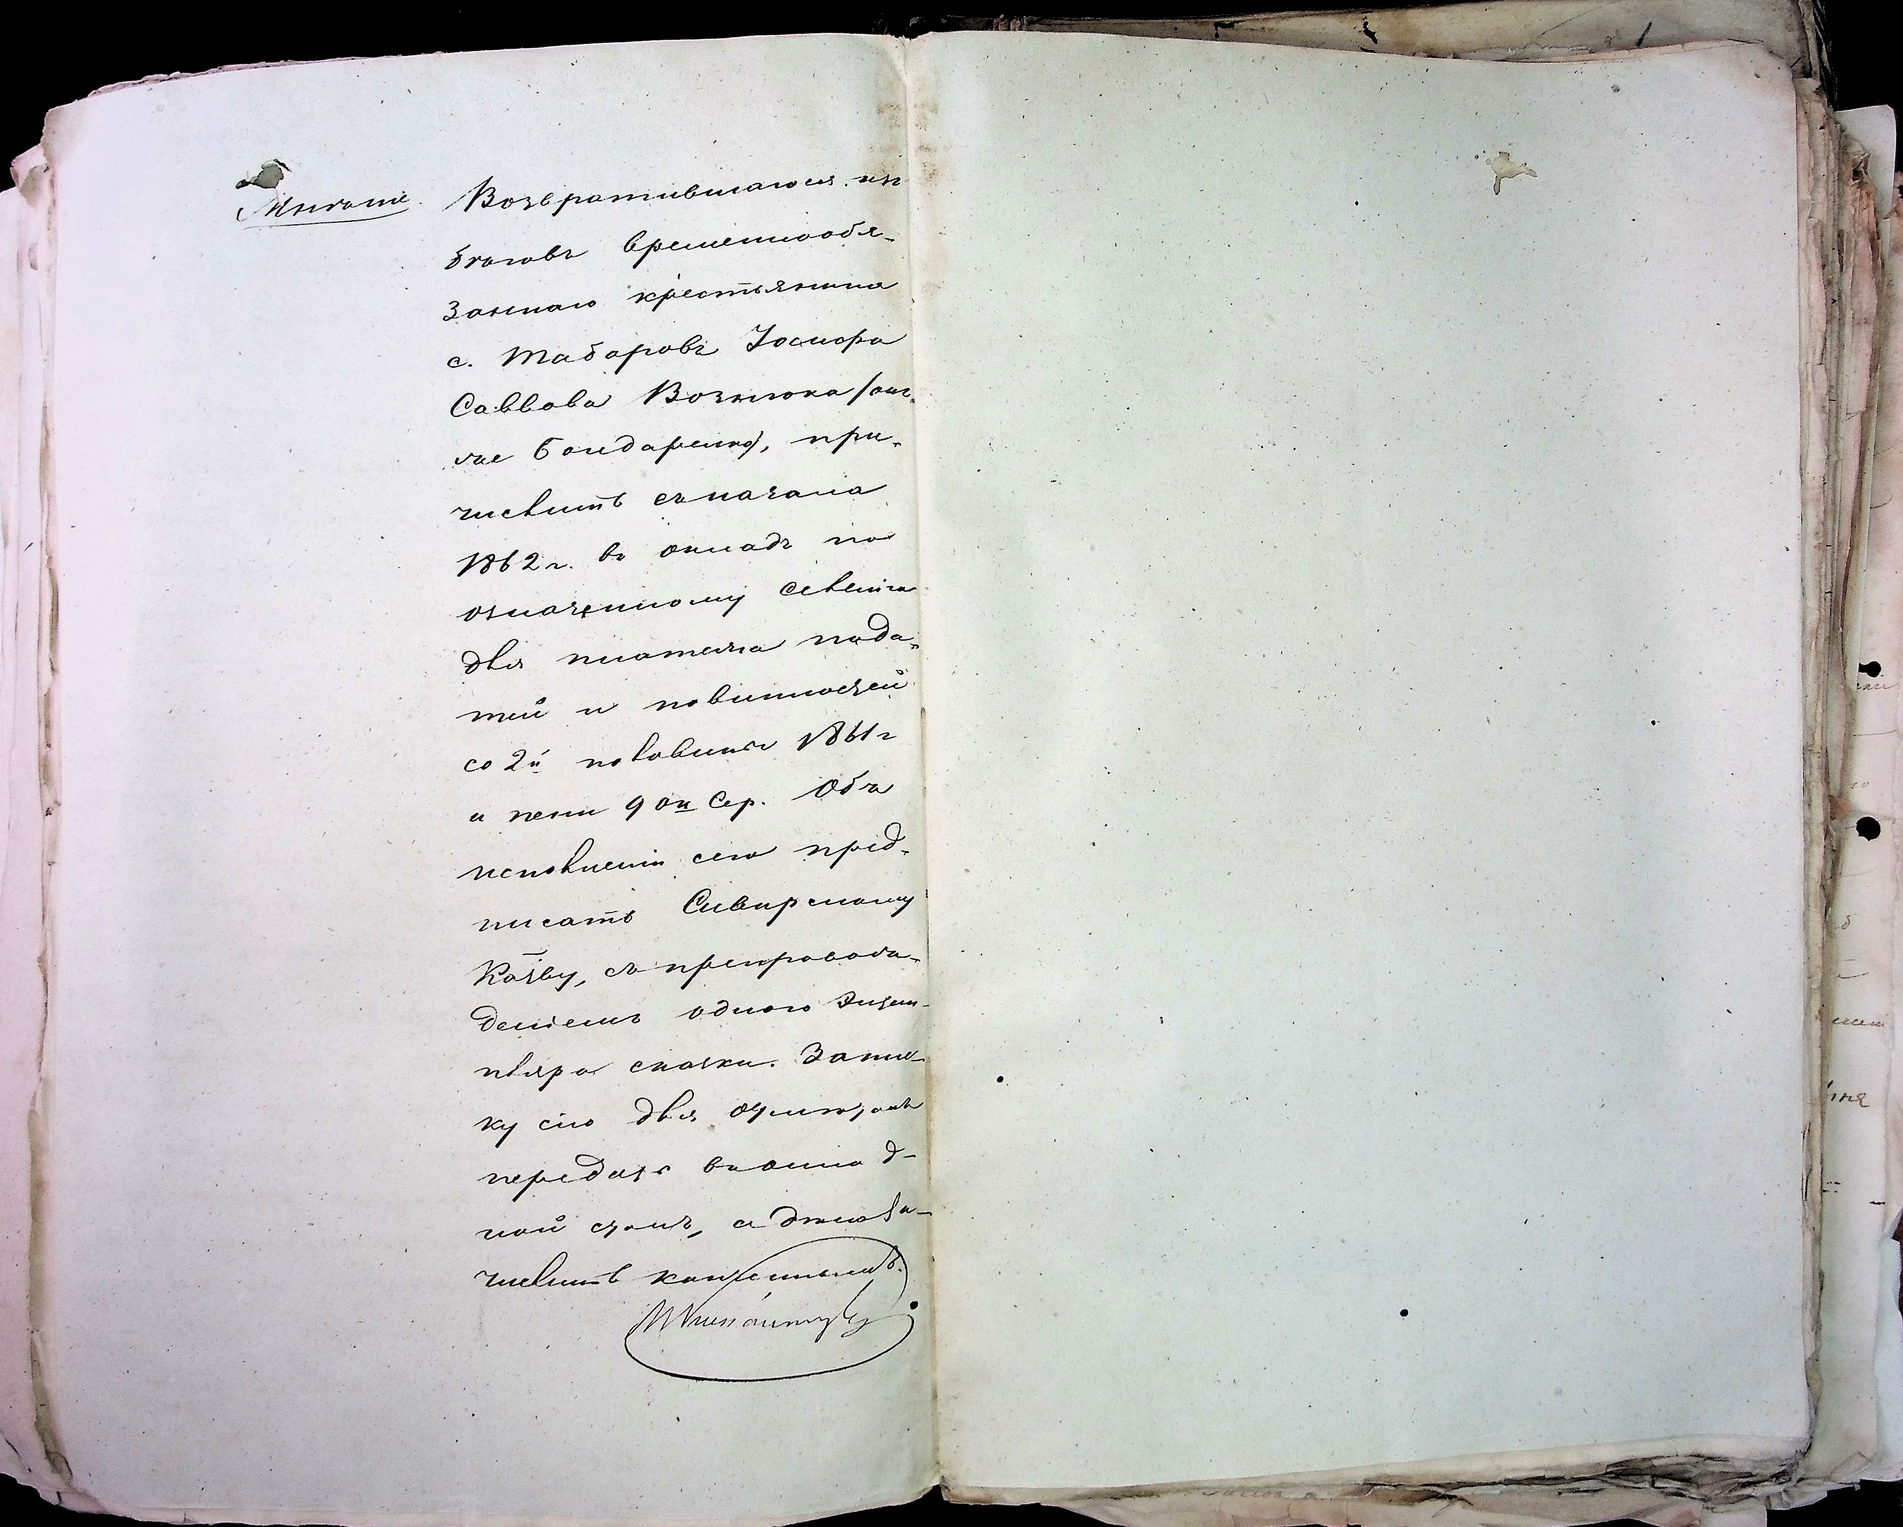 Мнѣніе. Возвратившагося изъ
бѣговъ временнообя-
заннаго крестьянина
с. Таборовъ Іосифа
Саввова Вознюка /онъ-
же Бондаренко/, при-
числить съ начала
1862 г. въ окладъ по
означенному селенію
для платежа пода-
тей и повинностей
со 2й половины 1861 г
и пени 9 ок Сер. Объ
исполненіи сего пред-
писать Сквирскому
Каз-ву, съ препровож-
деніемъ одного экзем-
пляра сказки. Запис-
ку сію для
передать въ оклад-
ной столъ, а дѣло за-
числить конченнымъ.